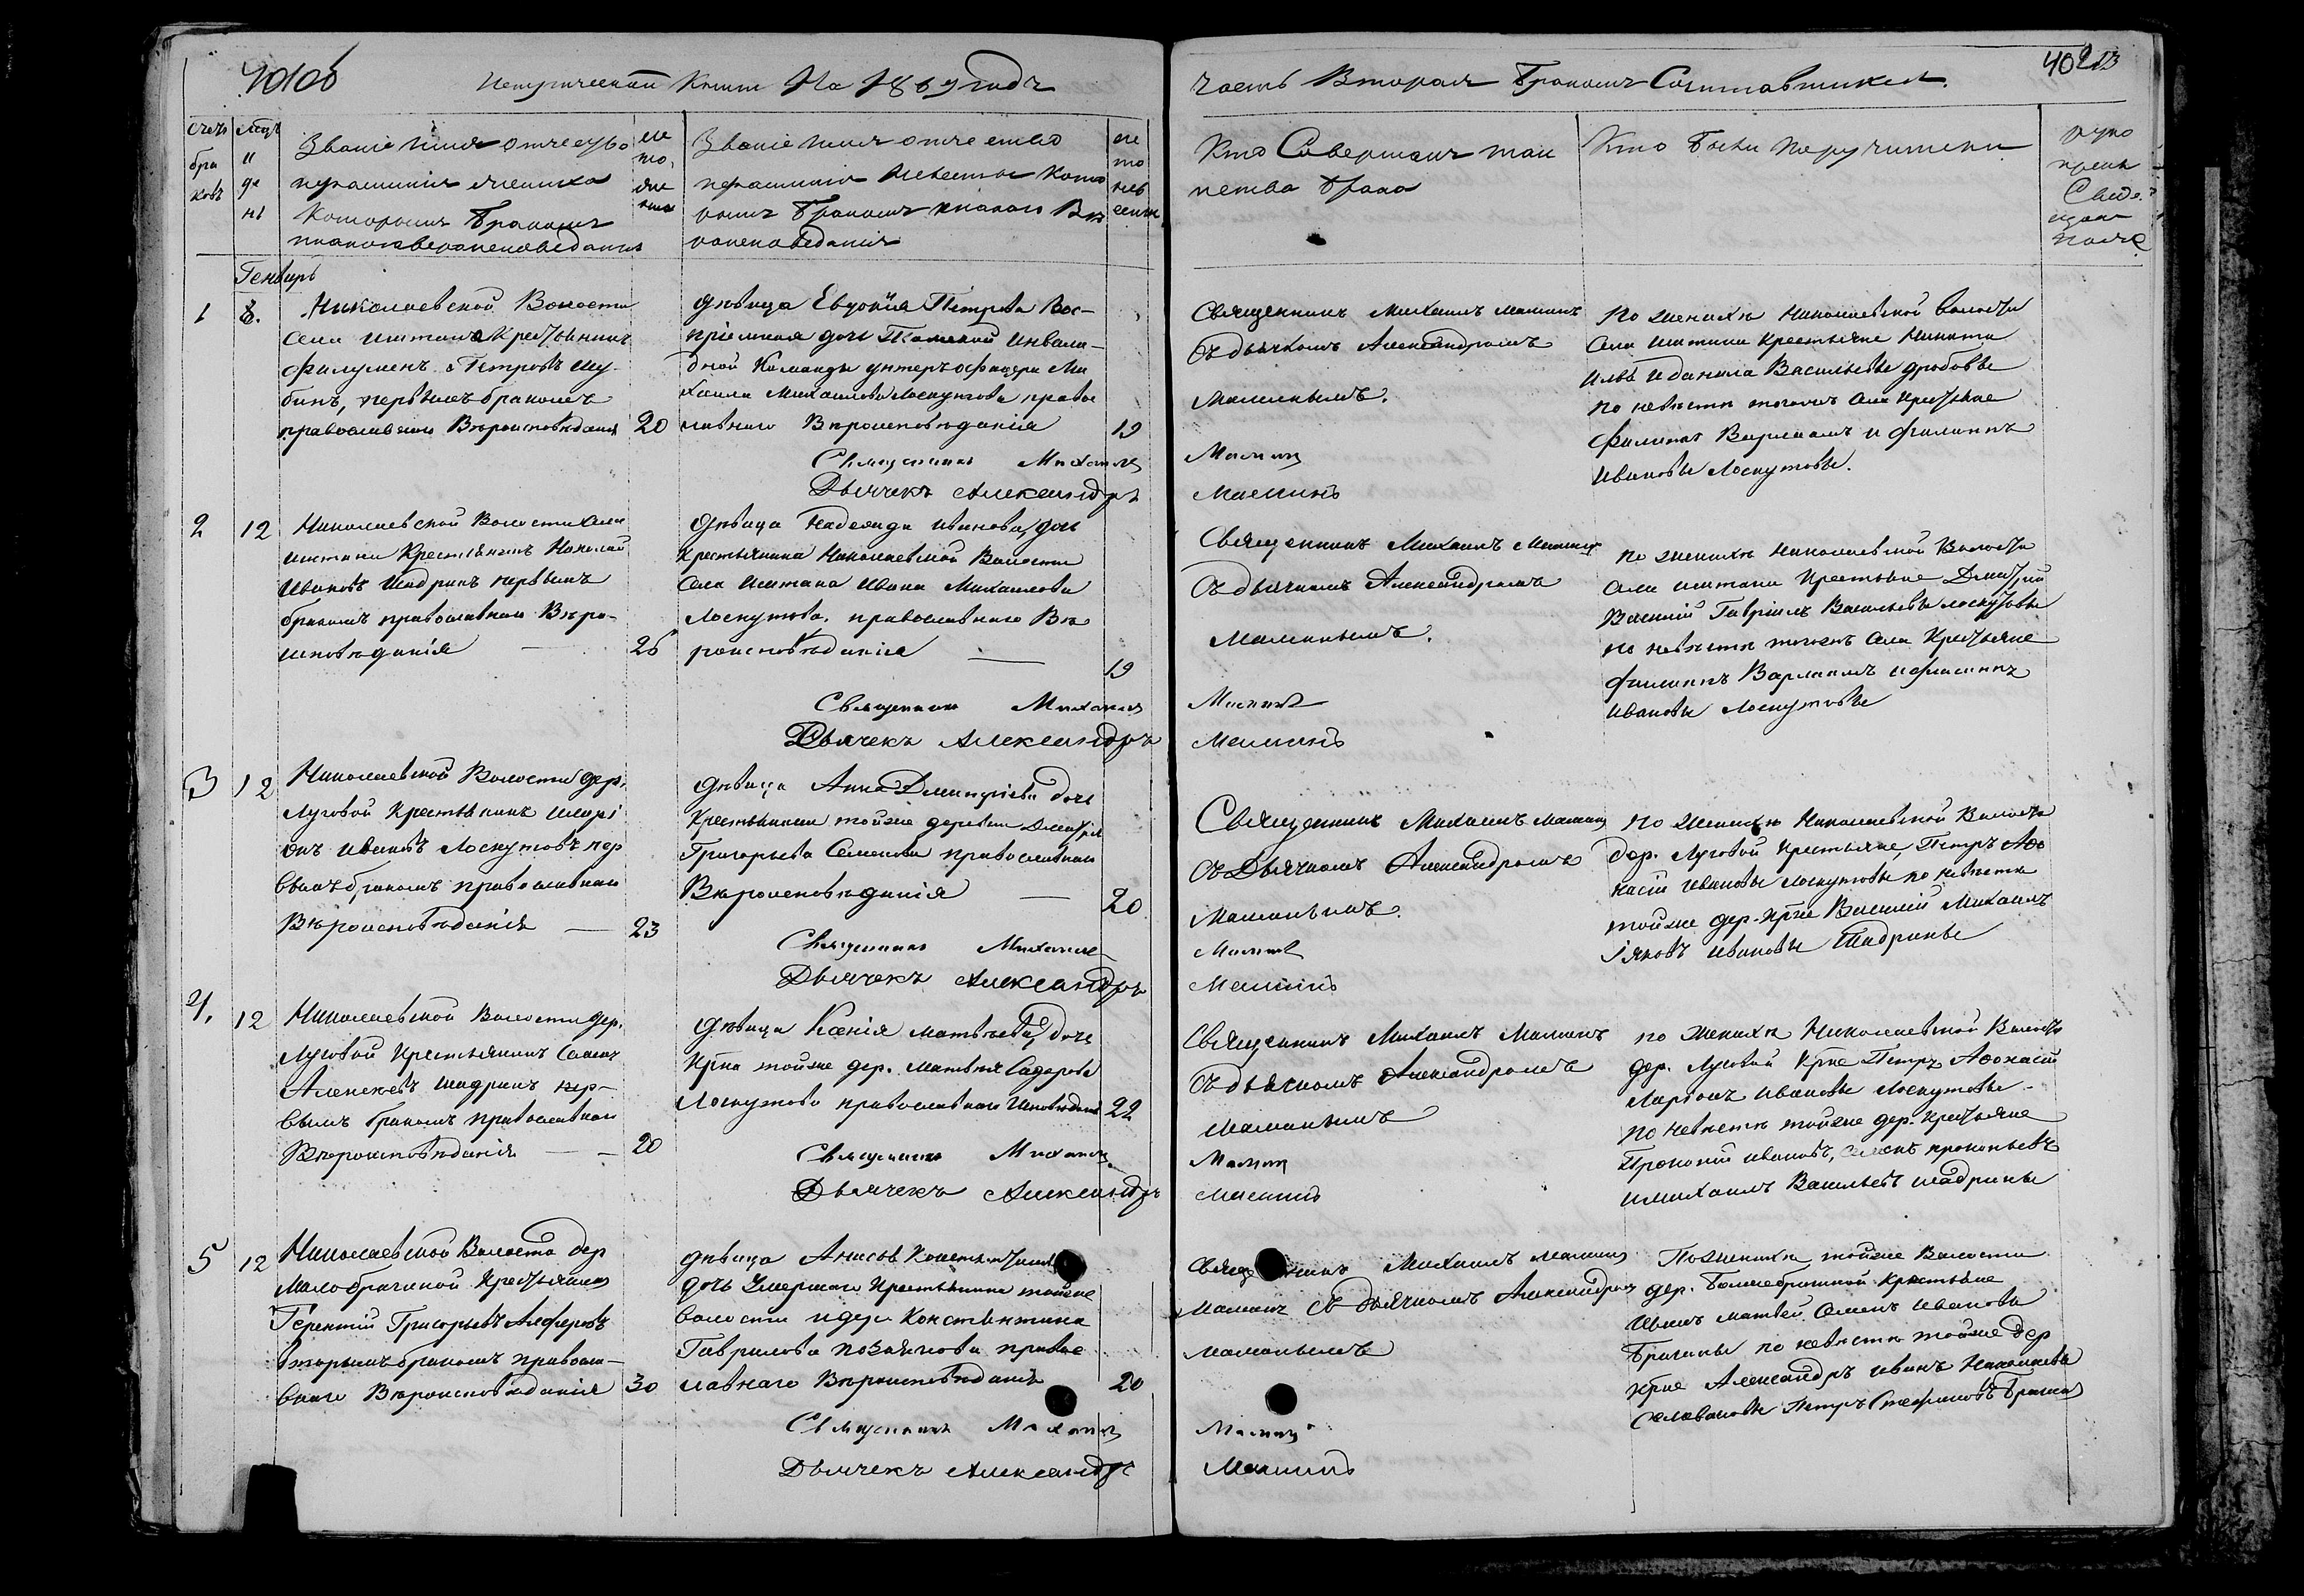 401об
Метрической Книги На 1869 годъ
часть Вторая Бракомъ Сочитавшихся.
402
счетъ
бра
ковъ
мцъ
и
де
нь
Званіе имя отчество
и фамилия жениха
Которымъ Бракомъ
лѣ
то
же
ниха
Званіе имя отчество
и фамилия Невесты Кото
рымъ Бракомъ
роисповеданія
ле
то
нев
есты
Кто Совершалъ таи
нства Брака
Кто были поручители
руко
Генварь
1
8.
Николаевской Волости
села иштана Крестьянинъ
филумень Петровъ Шу-
бинъ, первымъ бракомъ
православнаго Вѣроисповѣданія
20
дѣвица Евдокія Петрова Вос-
пріемная дочь Томской инвали-
дной Команды унтеръ офицера Ми
хаила Михаилова Лоскутова право
славнаго Вѣроисповѣданія
19
Священникъ Михаилъ
Дьячекъ Александръ
Священникъ Михаилъ Маминъ
Съ дьячкомъ Александромъ
Маминымъ.
Маминъ
Маминъ
По женихѣ Николаевской волости
Села иштана Крестьяне Никита
Ильи и данила Васильевы дробовы
по невѣсте тогожъ села Крестьяне
филипъ Варлаамъ и филиппъ
Ивановы Лоскутовы.
2
12
Николаевской Волости села
иштана Крестьянинъ Николай
Ивановъ Шадринъ первымъ
бракомъ православнаго Вѣро-
исповѣданія
26
дѣвица Надежда Иванова, дочь
Крестьянина Николаевской Волости
села Иштана Ивана Михаилова
Лоскутова, православнаго Вѣ
роисповѣданія
19
Священникъ Михаилъ
Дьячекъ Александръ
Священникъ Михаилъ Маминъ
Съ дьячкомъ Александромъ
Маминымъ.
Маминъ
Маминъ
по женихѣ Николаевской Волости
села иштана Крестьяне Дмитрій
Василій Гавріилъ Васильевы лоскутовы
по невѣсте тогожъ села Крестьяне
филиппъ Варлаамъ и филиппъ
Ивановы Лоскутовы
3
12
Николаевской Волости дер.
Луговой Крестьянинъ Иларі
онъ Ивановъ Лоскутовъ пер
вымъ бракомъ православнаго
Вѣроисповѣданія
23
дѣвица Анна Дмитріева дочь
Крестьянина тойже деревни Дмитрія
Григорьева Семенова православнаго
Вѣроисповѣданія
20
Священникъ Михаилъ
Дьячекъ Александръ
Священникъ Михаилъ Маминъ
Съ Дьячкомъ Александромъ
Маминымъ.
Маминъ
Маминъ
По женихѣ Николаевской Волости
дер. Луговой Крестьяне, Петръ Афо
насій Ивановы Лоскутовы по невѣсте
тойже дер. Крне Василій Михаилъ
Іяковъ Ивановы Шадрины
4.
12
Николаевской Волости дер.
Луговой Крестьянинъ Семенъ
Алексеевъ Шадринъ пер-
вымъ бракомъ православнаго
Вѣроисповѣданія
20
дѣвица Ксенія матвѣева, дочь
Крна тойже дер. Матвѣя Сидорова
Лоскутова православнаго Исповѣданія
22
Священникъ Михаилъ
Дьячекъ Александръ
Священникъ Михаилъ Маминъ
Съ дьячкомъ Александромъ
Маминымъ
Маминъ
Маминъ
по женихѣ Николаевской Волости
дер. Луговой Крне Петръ Афонасій
Ларіонъ Ивановы Лоскутовы.
По невѣсте тойже дер. Крестьяне
Прокопій Ивановъ, Семенъ прокопьевъ
и михаилъ Васильевъ шадрины
5
12
Николаевской Волости дер
Малобрагиной Крестьянинъ
Терентій Григорьевъ Алферовъ
вторымъ бракомъ правосла-
внаго Вѣроисповѣданія
30
дѣвица Анисья
дочь Умершаго Крестьянина тойже
волости и дер. Константина
Гаврилова Познякова право
славнаго Вѣроисповѣданія
20
Священникъ Михаилъ
Дьячекъ Александръ
Священникъ Михаилъ Маминъ
Съ дьячкомъ Александромъ
Маминымъ
Маминъ
Маминъ
По женихѣ тойже Волости
дер. Большебрагиной Крестьяне
Иванъ Матвей Семенъ Ивановы
Брагины по невѣсте тойже дер
Крне Александръ Иванъ Николаевы
Селивановы Петръ Стефановъ Брагинъ